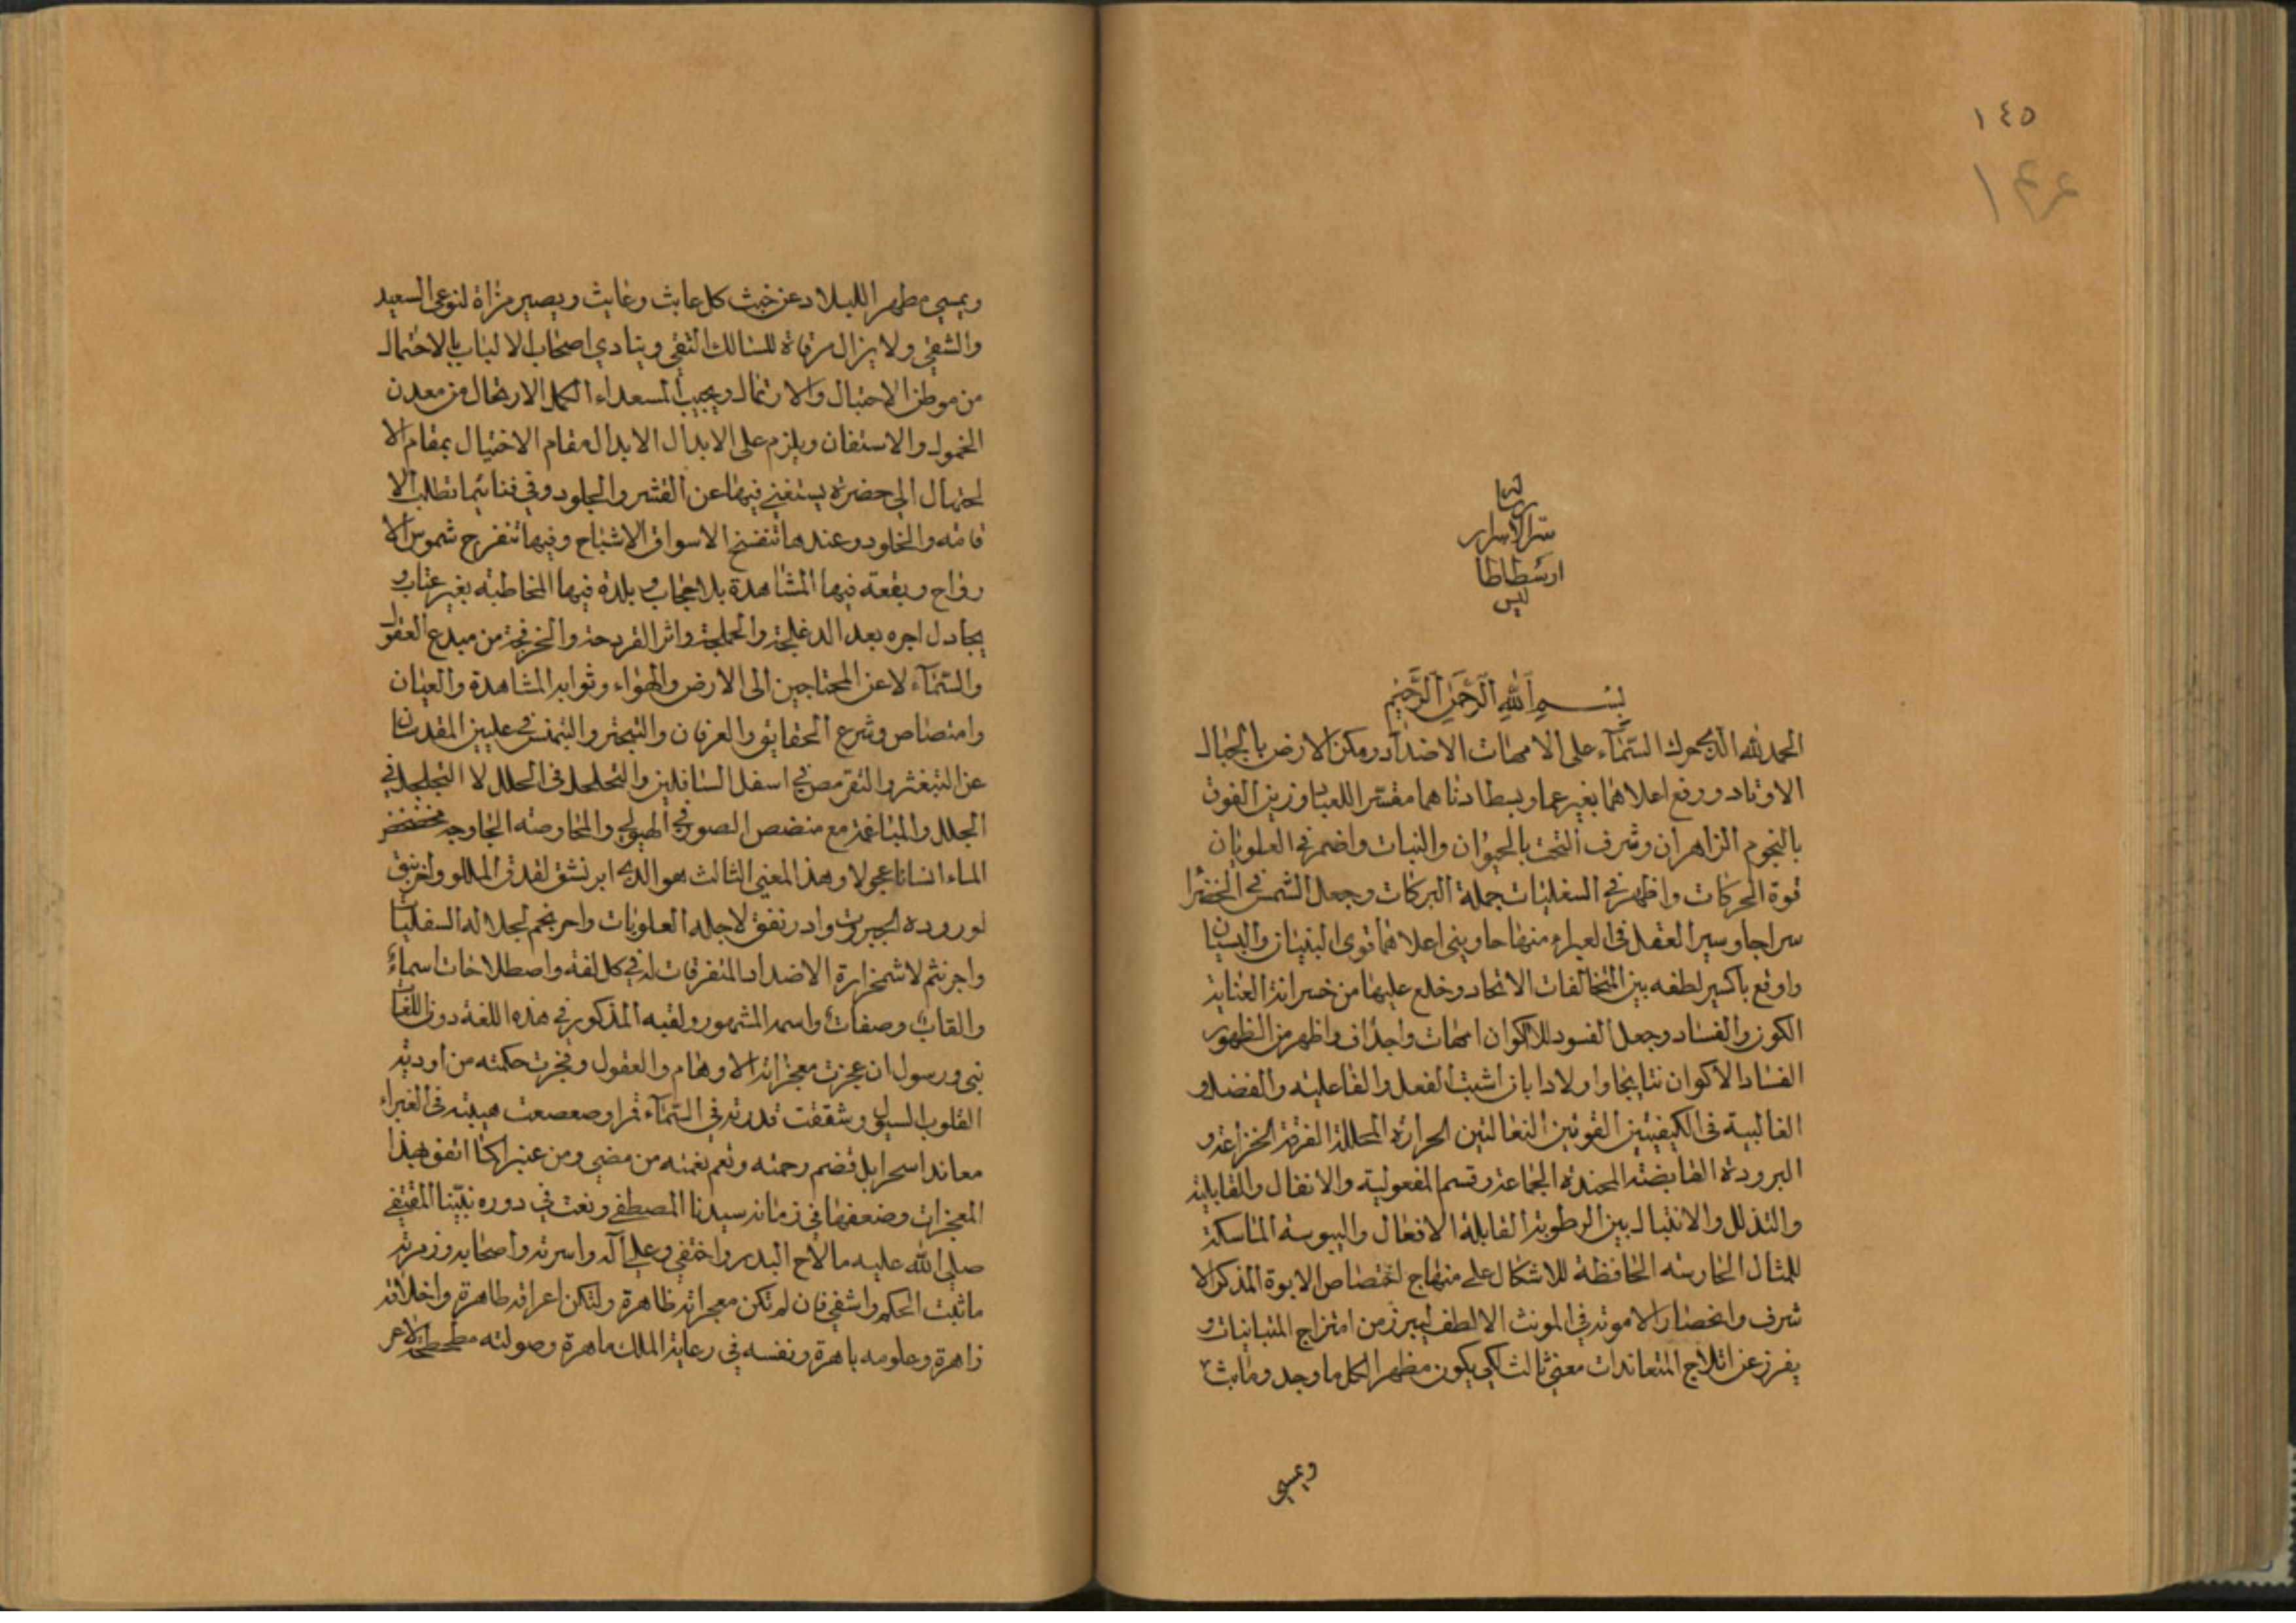 ١٤٥
رسالة
سر الاسرار
ارسطاطا
ليس
بسم الله الرحمن الرحيم
الحمد لله الذي حرك السماء على الامهات الاضداد ومكن الارض بالجبال
الاوتاد ورفع اعلاهما بغير عماد وبسط ادناهما مقسر اللعباد وزين الفوق
بالنجوم الزاهران وشرف التحت بالحيوان والنبات واضمر في العلويان
قوة الحركات واظهر في السفليات جملة البركات وجعل الشمس في الخضرا
سراجا وسير العقل في الغبراء منهاجا وبنى اعلاهما قوى البنيان والبستان
واوقع باكسير لطفه بين المتخالفات الاتحاد وخلع عليها من خسرانة العناية
الكون والفساد وجعل الفسود للاكوان امهات واجداف واظهر من الظهور
الفساد الاكوان نتايجا واولادا بان اثبت الفعل والفاعلية والفضل و
الغالبية في الكيفيتين القوتين الفعالتين الحرارة المحللة المفرقة الخزاعة و
البرودة القابضة المحندة الجماعة وقسم المفعولية والانفال والقابلية
والتذلل والانتبال بين الرطوبة القابلة الافعال واليبوسة الماسكة
للمثال الحارسة الحافظة للاشكال على منهاج اختصاص الابوة المذكر الا
شرف وانحصار الاموته في المونث الالطف ليبرز من امتزاج المتباينات و
يفرز عن اتلاج المتعاندات معنى ثالث لكي يكون مظهر الكل ما وجد وماث
ويمسي
ويمسي مطهر البلاد عن خبث كل عابث وغايث ويصير مراة لنوعى السعيد
والشقي ولا يزال مرقاة للسالك التقي وينادي اصحاب الالباب بالاحتمال
من موطن الاحتبال والارتمال ويجيب السعداء الكمل الارتحال من معدن
الخمول والاستفان ويلزم على الابدال الابدال مقام الاختيال بمقام الا
حتمال الي حضرة يستغني فيها عن القشر والجلود وفي فنائها تطلب الا
قامة والخلود وعندها تنفسخ الاسواق الاشباح وفيها تنفرج شموس الا
رواح وبقعة فيها المشاهدة بلا حجاب وبلدة فيها المخاطبة بغير عتاب و
يجادل اجره بعد الدغلجة والحملجة واثر القردحة والخرفجة من مبدع العقول
والسماء لا عن المحتاجين الى الارض والهواء وثوابه المشاهدة والعيان
وامتصاص وشرع الحقايق والعرفان والتبحتر والتمنس في عليين المقدسان
عن التبغثر والتقرمص في اسفل السافلين والتحلحل في الحلل لا التجلجل في
الجلل والمباغمة مع منضض الصور في الهيولي والمحاوصة الخاوجه
الماء انسانا عجولا وهذا المعنى الثالث هو الذي ابرنشق لقدق الملل واخرنبق
لوروده الجبروت وادرنفق لاجله العلويات واحرنجم لجلاله السفليات
واجرنثم لاشمخزارة الاضداد المتفرقات له في كل لغة واصطلاحات اسماء
والقاب وصفات واسمه المشهور ولقبه المذكور في هذه اللغة دون اللغات
نبي ورسول ان عجزت معجزاته الاوهام والعقول وفجرت حكمته من اودية
القلوب السيول وشققت قدرته في السماء قمرا وصعصعت هيبته في الغبراء
معاندا سحرا بل قضم رحمته ونعم نغمته من مضى ومن عبر كما اتفق هذا
المعجزات وضعفها في زمانه سيدنا المصطفى ونعت في دوره نبينا المقتفى
صلى الله عليه ما لاح البدر واختفى وعلى آله واسرته واصحابه وزمرته
ما ثبت الحكم واشفى فان لم تكن معجزاته ظاهرة ولتكن اعراقه طاهرة واخلاقه
زاهرة وعلومه باهرة ونفسه في رعاية الملك ماهرة وصولته